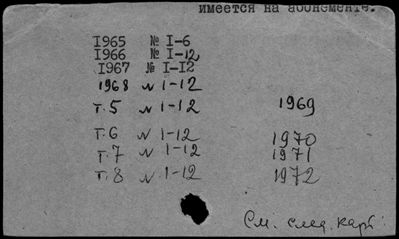 имеется на абонементе.
1965 № 1-6
1966 № 1-12
1967 № 1-12
1968 № 1-12
т.5 № 1-12 1969
т.6 № 1-12 1970
т.7 № 1-12 1971
т.8 № 1-12 1972
См. след. карт.